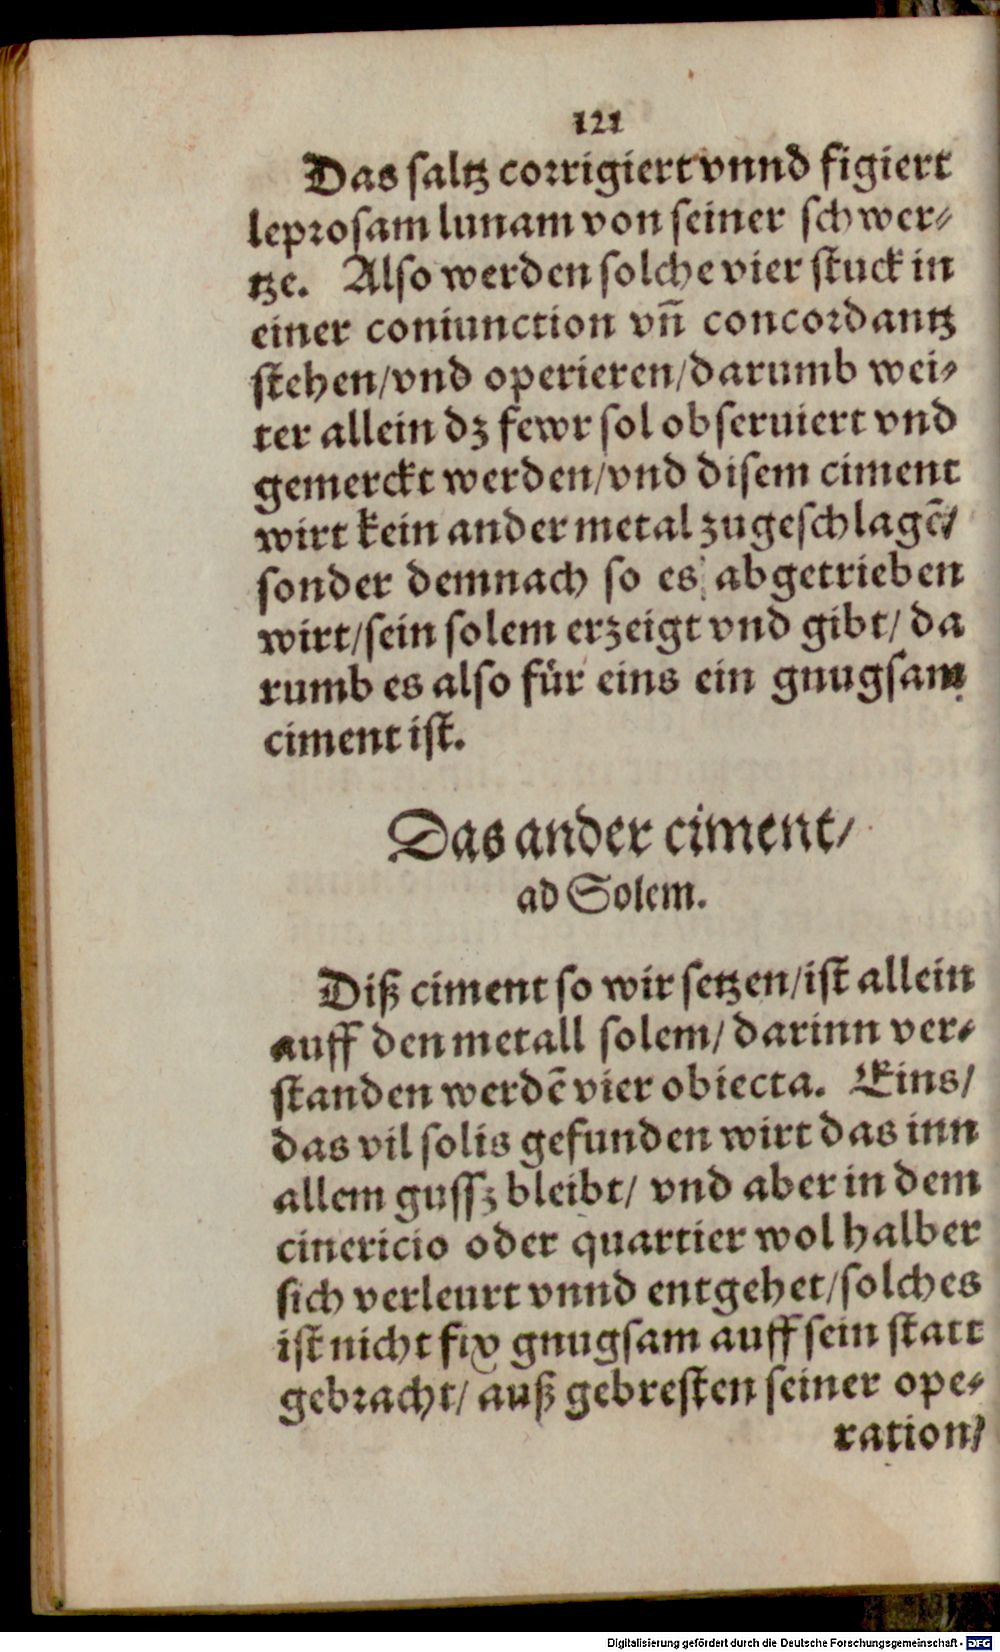 121
Das saltz corrigiert vnnd figiert
leprosam lunam von seiner schwer⸗
tze. Also werden solche vier stuck in
einer coniunction vn̄ concordantz
stehen/vnd operieren/darumb wei⸗
ter allein dz fewr sol obseruiert vnd
gemerckt werden/vnd disem ciment
wirt kein ander metal zugeschlagē/
sonder demnach so es abgetrieben
wirt/sein solem erzeigt vnd gibt/ da
rumb es also für eins ein gnugsam
ciment ist.
Das ander ciment/
ad Solem.
Diß ciment so wir setzen/ist allein
auff den metall solem/ darinn ver⸗
standen werdē vier obiecta. Eins/
das vil solis gefunden wirt das inn
allem gussz bleibt/ vnd aber in dem
cinericio oder quartier wol halber
sich verleurt vnnd entgehet/solches
ist nicht fix gnugsam auff sein statt
gebracht/ auß gebresten seiner ope⸗
ration/
Digitalisierung gefördert durch die Deutsche Forschungsgemeinschaft - DFG